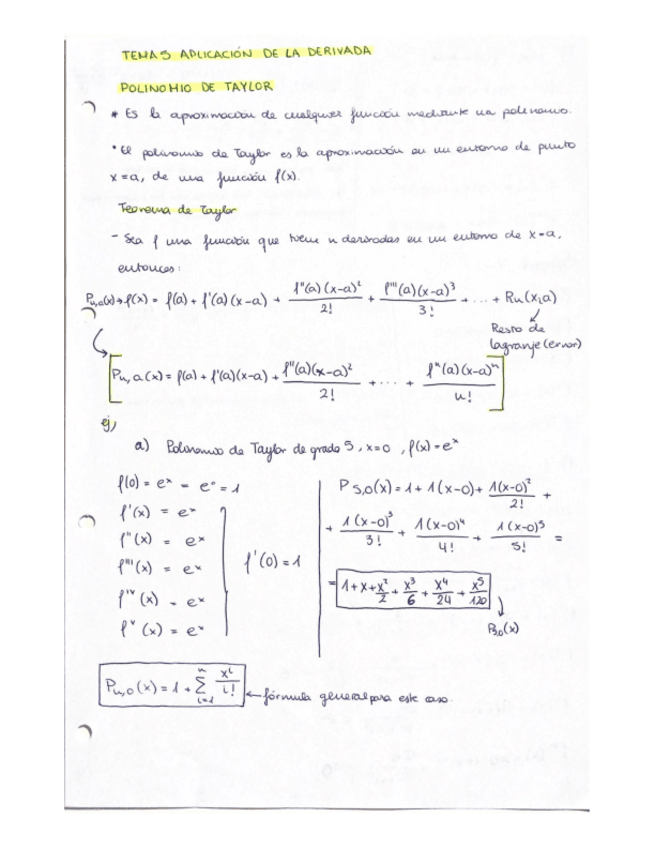 TEMA 5 APLICACIÓN DE LA DERIVADA
POLINOMIO DE TAYLOR
* Es la aproximación de cualquier función mediante un polinomio.
* El polinomio de Taylor es la aproximación en un entorno de punto
x=a, de una función f(x).
Teorema de Taylor
- Sea f una función que tiene n derivadas en un entorno de x=a,
entonces:
Pn,a(x)→f(x) = f(a) + f'(a)(x-a) + f''(a)(x-a)²/2! + f'''(a)(x-a)³/3! + ... + Rn(x,a)
Resto de
lagranje (error)
Pn,a(x) = f(a) + f'(a)(x-a) + f''(a)(x-a)²/2! + ... + fⁿ(a)(x-a)ⁿ/n!
ej,
a) Polinomio de Taylor de grado 5, x=0, f(x)=eˣ
f(0) = eˣ = e⁰ = 1
f'(x) = eˣ
f''(x) = eˣ
f'''(x) = eˣ
fᴵⱽ(x) = eˣ
fⱽ(x) = eˣ
f'(0) = 1
P5,0(x) = 1 + 1(x-0) + 1(x-0)²/2! +
+ 1(x-0)³/3! + 1(x-0)⁴/4! + 1(x-0)⁵/5! =
= 1 + x + x²/2 + x³/6 + x⁴/24 + x⁵/120
P5,0(x)
Pn,0(x) = 1 + Σ(i=1, n) xⁱ/i! ← fórmula general para este caso.